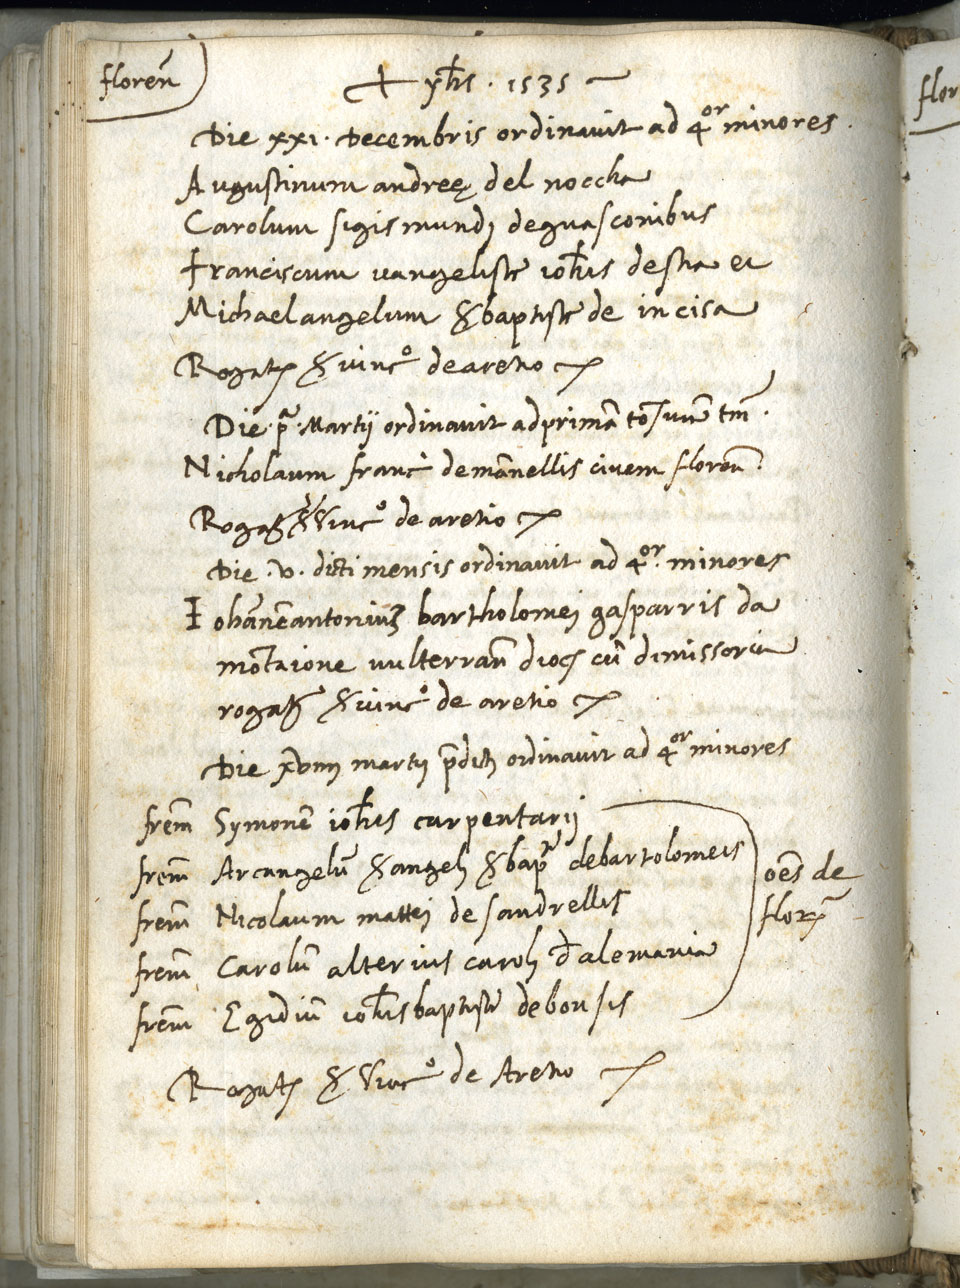 florēn
+ yhs · 1535 —
Die xxi · Decembris ordinavit ad 4or minores
Augustinum andreę del noccha
Carolum sigismundj de guasconibus
Franciscum vangeliste iohīs de stia et
Michaelangelum baptiste de incisa
Rogat vinco de aretio
Die · pa · Martij ordinavit ad primā tōsurā tm̄ ·
Nicholaum franci de mānellis civem florēn ·
Rogat Vinco de aretio
Die · v · dicti mensis ordinavit ad 4or · minores
Iohānēantoniuʒ bartholomej gasparris da
mōtaione vulterrān dioc cū dimissoria
rogat vinco de aretio
Die xviiij martij p̄dictj ordinavit ad 4or minores
frēm Symonē iohīs carpentarij
frēm Arcangelū angelj bapte de bartolomeis
frēm Nicolaum mattej de sandrellis
frēm Carolū alterius carolj d̄ alemania
frēm Egidiū iohīsbaptiste de bonsis
oēs de
florā
Rogat Vinco de Aretio
flor